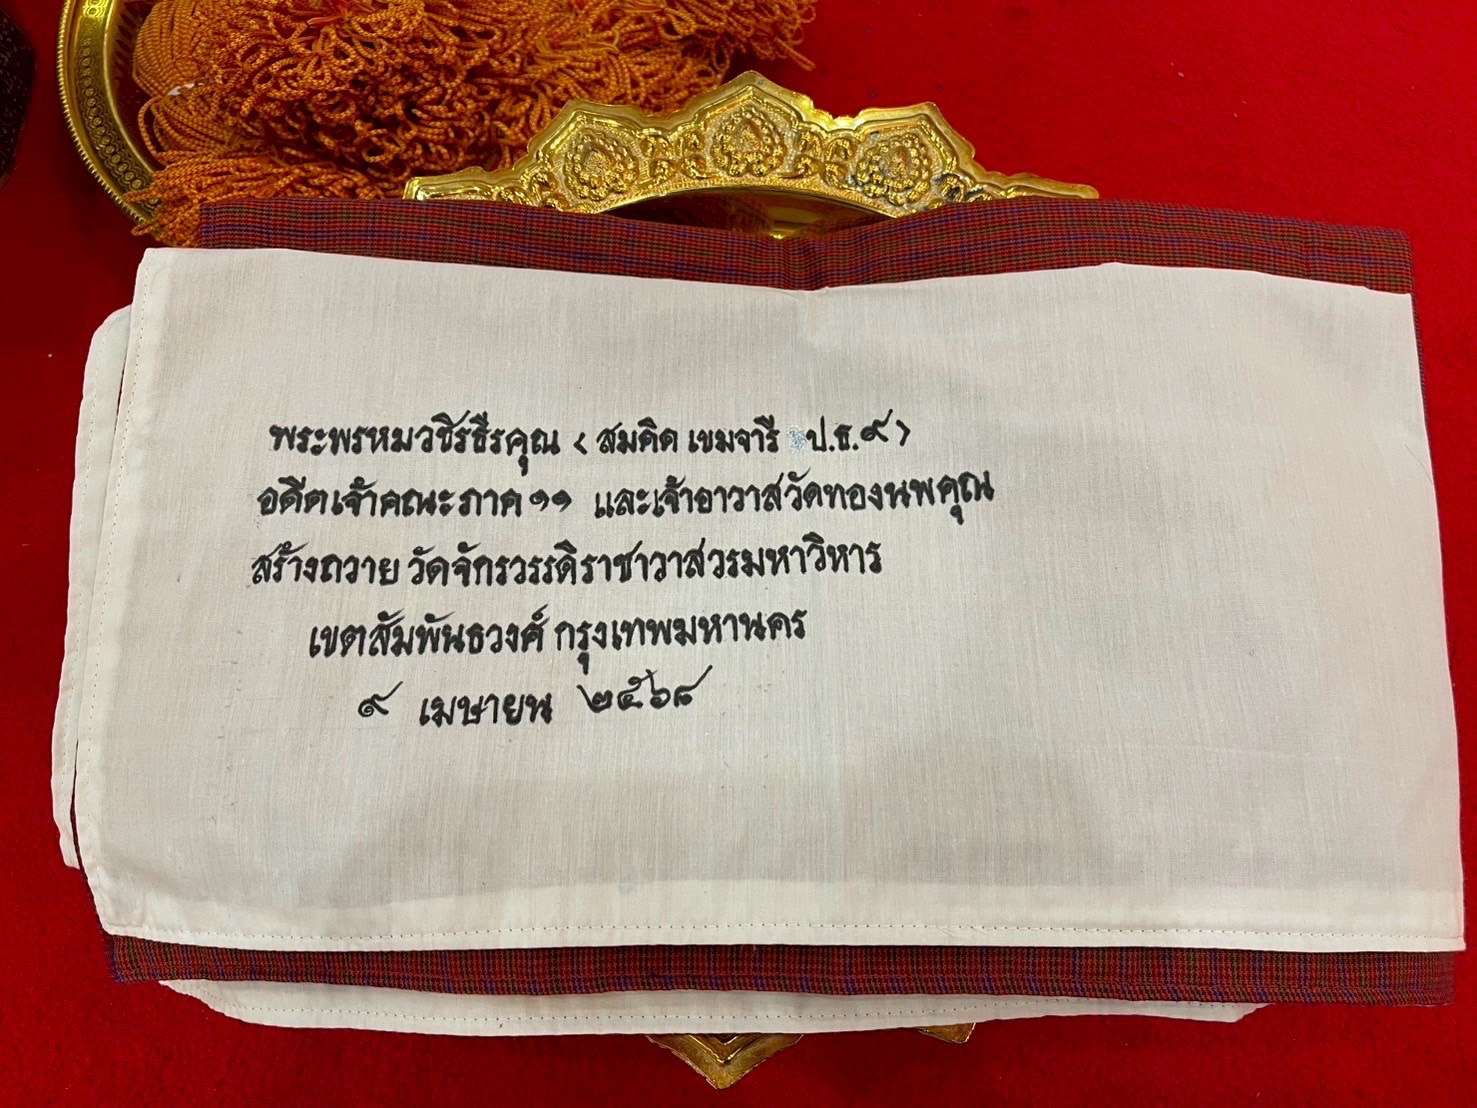 พระพรหมวชิรธีรคุณ < สมคิด เขมจารี ป.ธ.๙ >
อดีตเจ้าคณะภาค ๑๑ และเจ้าอาวาสวัดทองนพคุณ
สร้างถวาย วัดจักรวรรดิราชาวาสวรมหาวิหาร
เขตสัมพันธวงศ์ กรุงเทพมหานคร
๙ เมษายน ๒๕๖๘